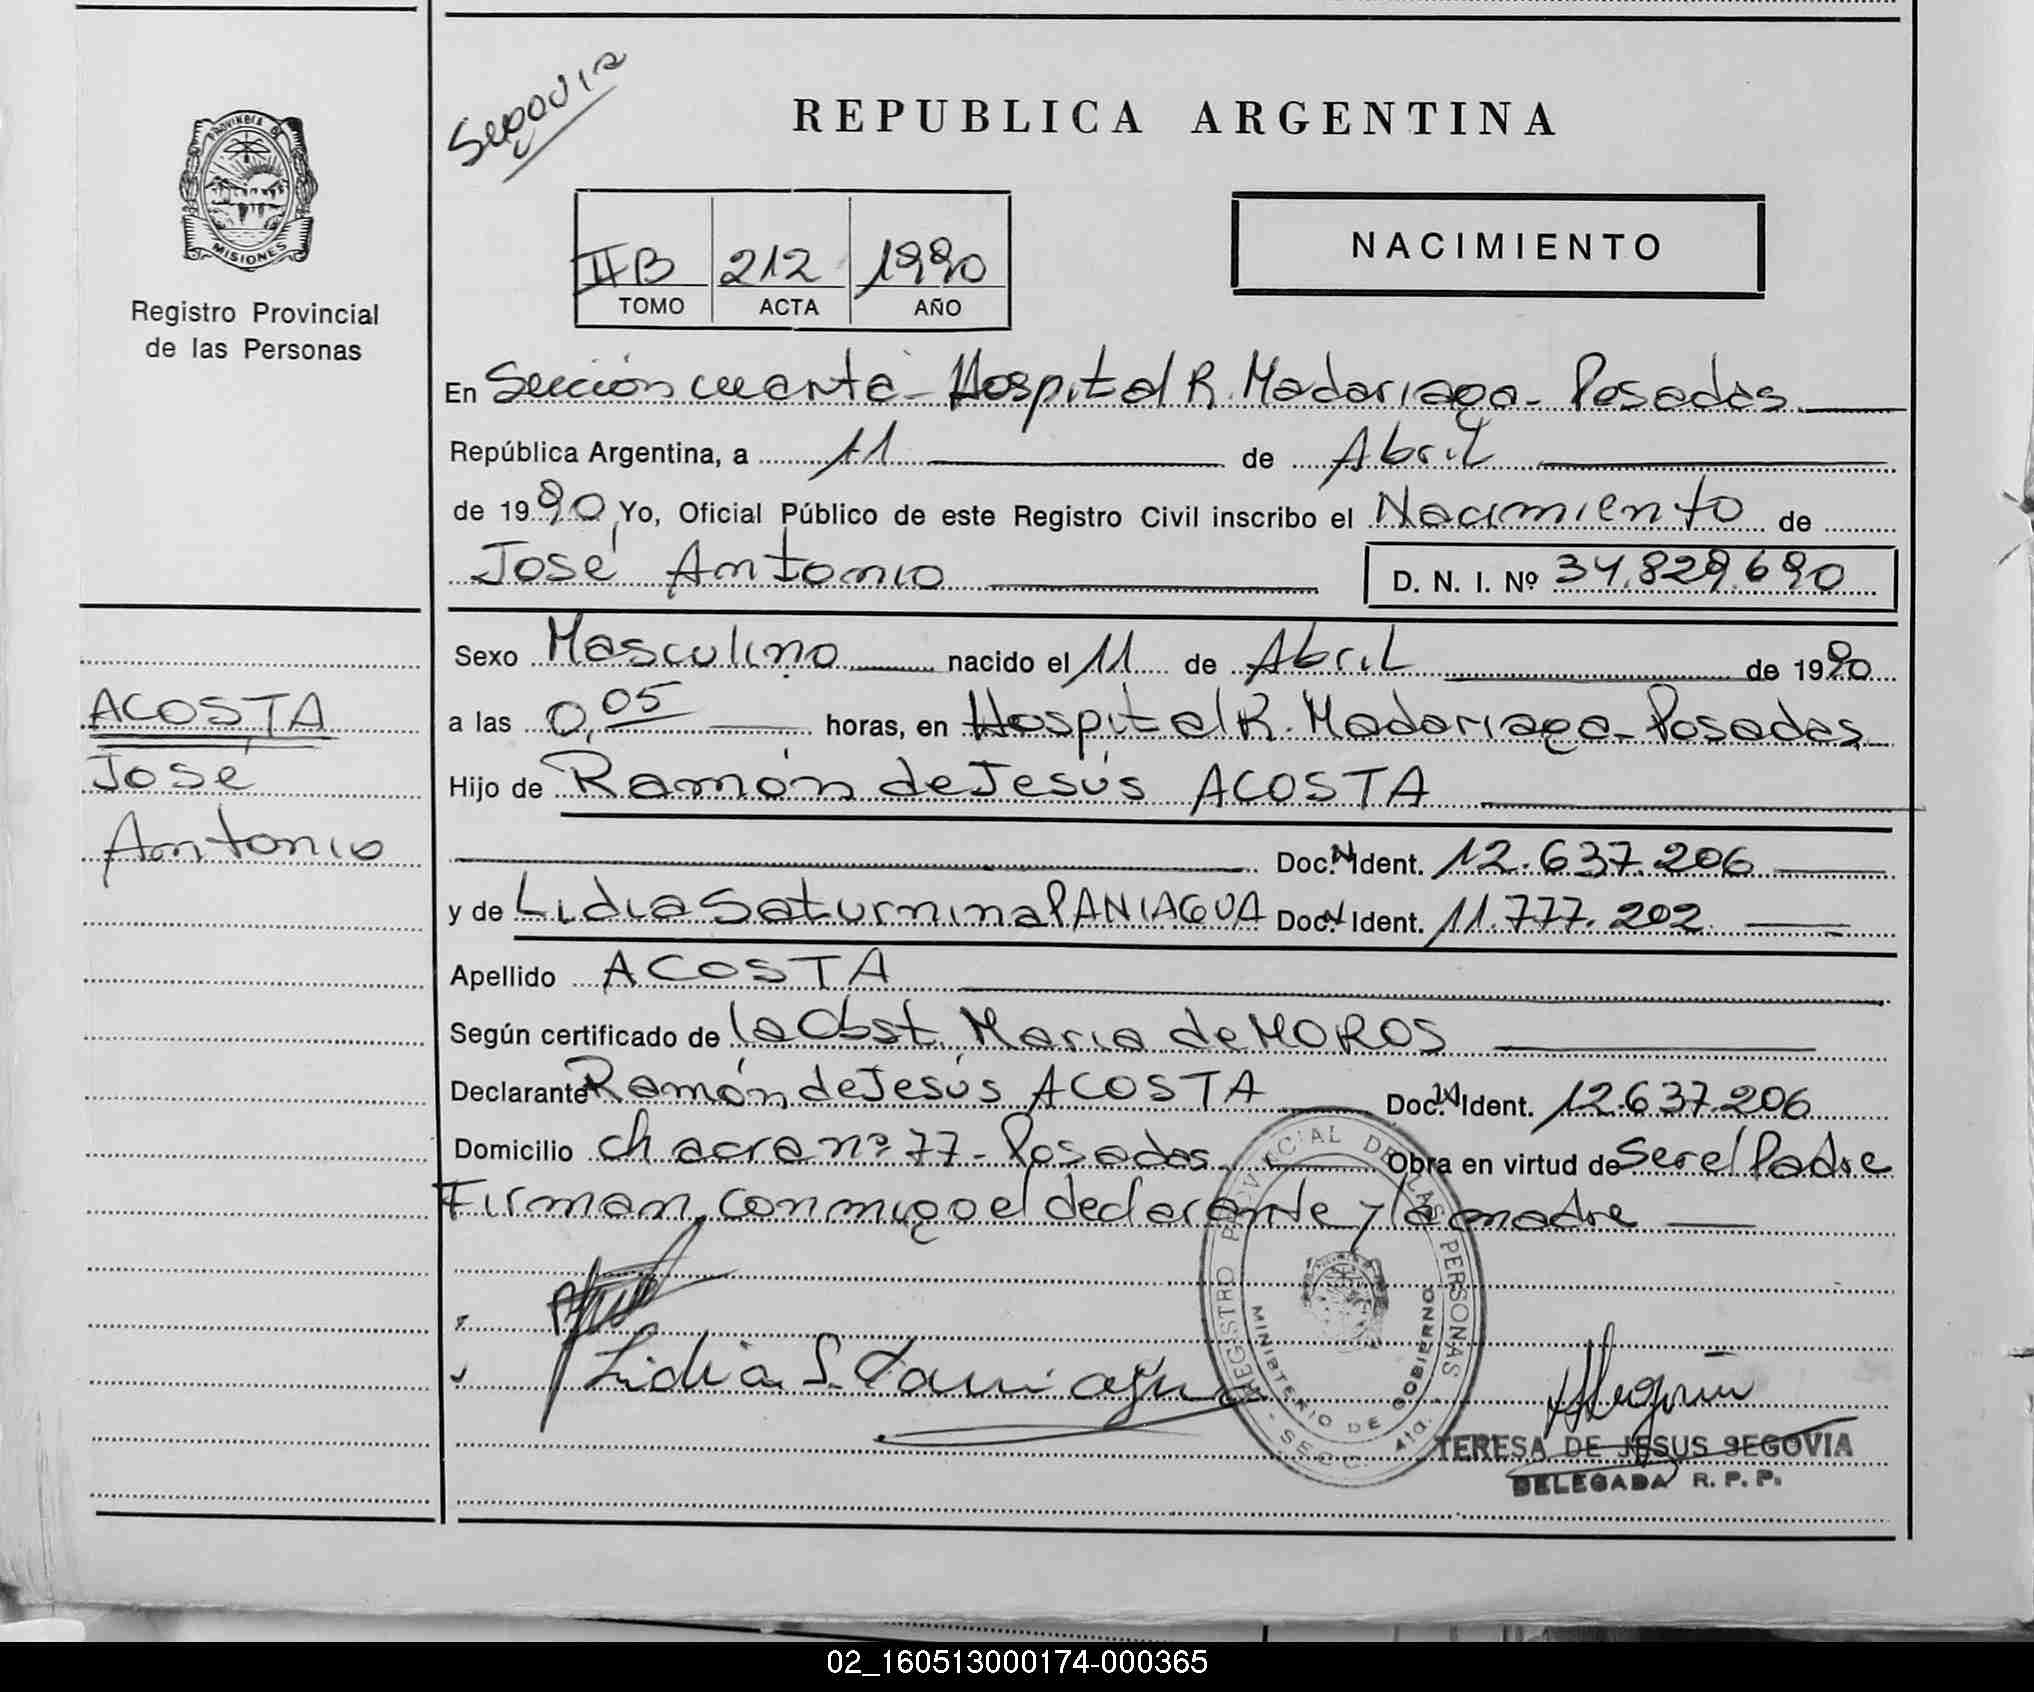 Segovia
REPUBLICA ARGENTINA
PROVINCIA DE
MISIONES
Registro Provincial
de las Personas
IIB 212 1990
TOMO ACTA AÑO
NACIMIENTO
En Sección cuarta - Hospital R. Madariaga - Posadas
República Argentina, a 11 de Abril
de 1990 Yo, Oficial Público de este Registro Civil inscribo el Nacimiento de
José Antonio D. N. I. Nº 34.829.690
Sexo Masculino nacido el 11 de Abril de 1990
a las 0,05 horas, en Hospital R. Madariaga - Posadas
Hijo de Ramón de Jesús ACOSTA
Doc. N Ident. 12.637.206
y de Lidia Saturnina PANIAGUA Doc. N Ident. 11.777.202
Apellido ACOSTA
Según certificado de la Obst. María de MOROS
Declarante Ramón de Jesús ACOSTA Doc. N Ident. 12.637.206
Domicilio chacra nº 77 - Posadas Obra en virtud de Ser el Padre
Firman conmigo el declarante y la madre
ACOSTA
José
Antonio
Lidia S. Paniagua
REGISTRO PROVINCIAL DE LAS PERSONAS
MINISTERIO DE GOBIERNO
- SECC. 4ta. -
TERESA DE JESUS SEGOVIA
DELEGADA R. P. P.
02_160513000174-000365